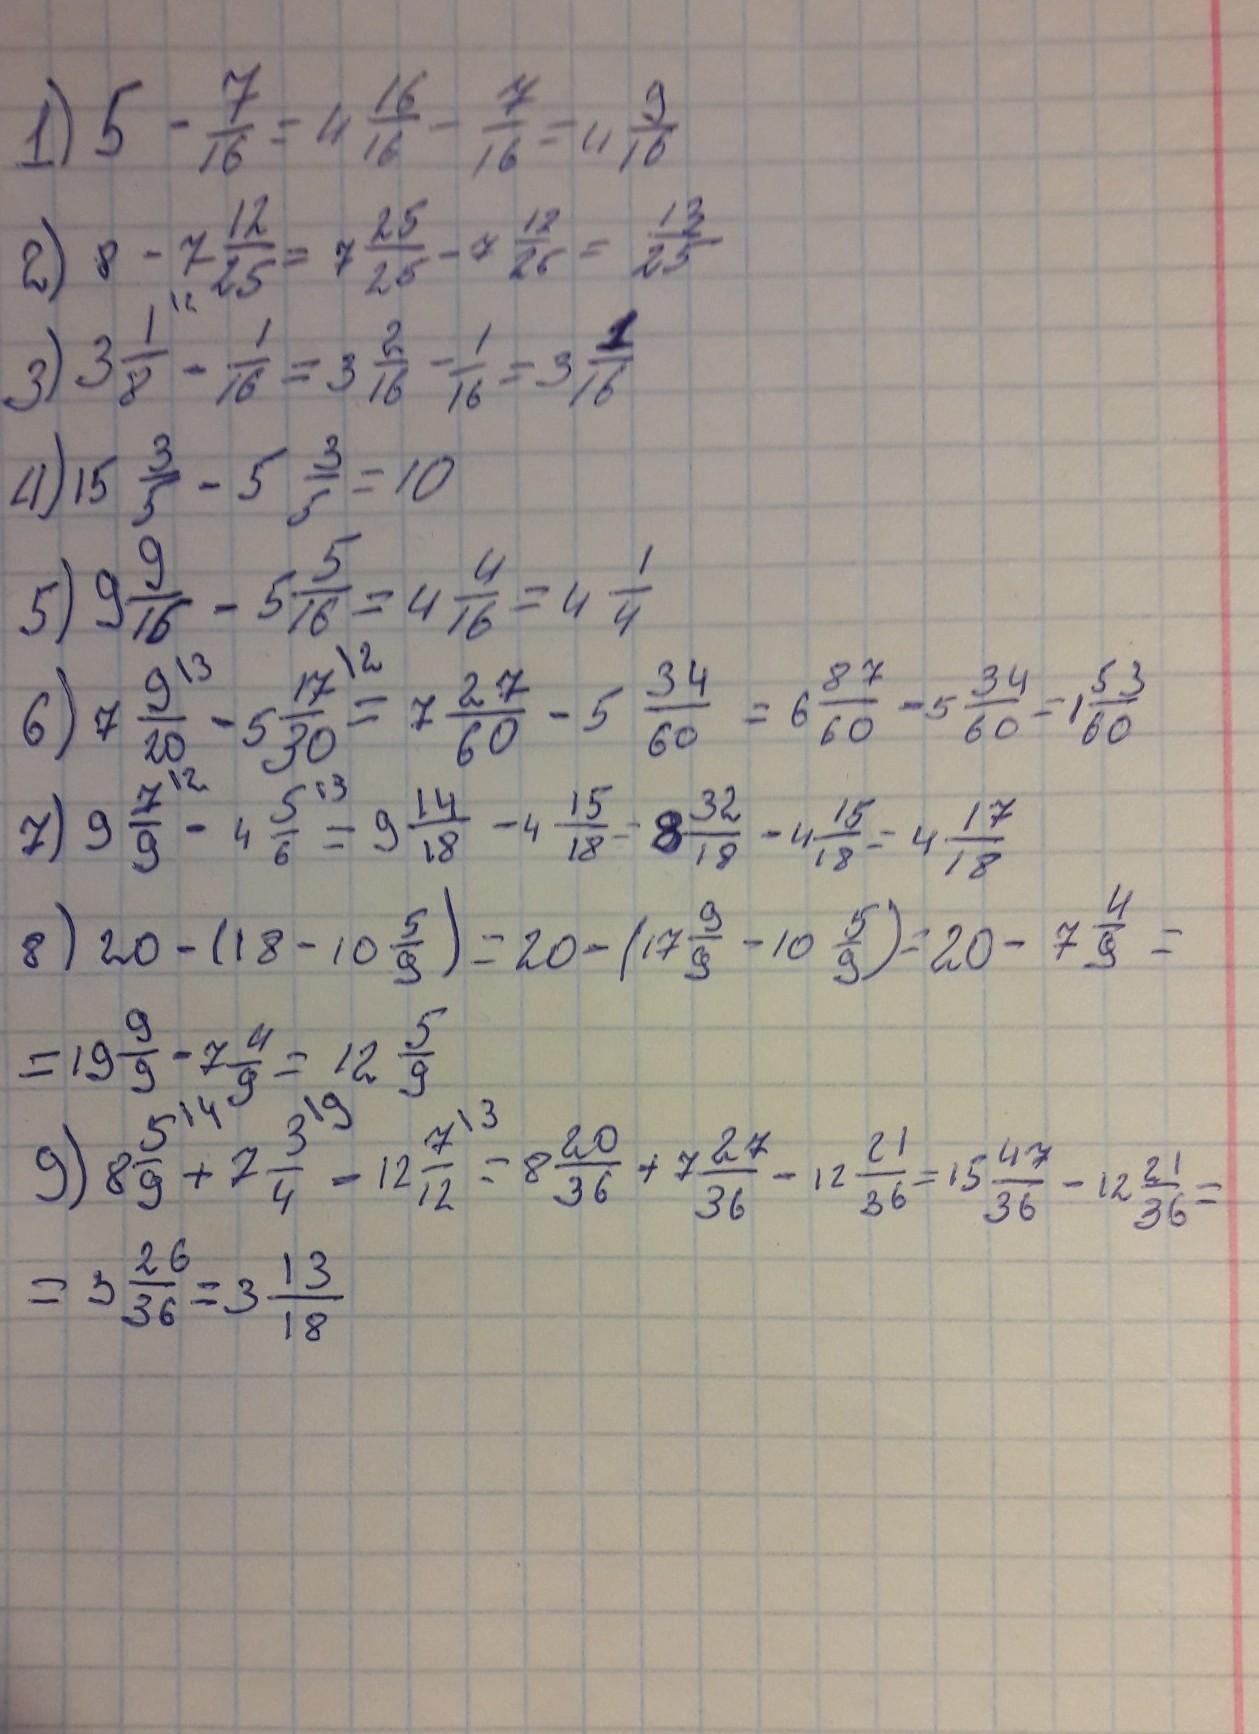 1) 5 - 7/16 = 4 16/16 - 7/16 = 4 9/16
2) 8 - 7 12/25 = 7 25/25 - 7 12/25 = 13/25
3) 3 1/8 \2 - 1/16 = 3 2/16 - 1/16 = 3 1/16
4) 15 3/5 - 5 3/5 = 10
5) 9 9/16 - 5 5/16 = 4 4/16 = 4 1/4
6) 7 9/20 \3 - 5 17/30 \2 = 7 27/60 - 5 34/60 = 6 87/60 - 5 34/60 = 1 53/60
7) 9 7/9 \2 - 4 5/6 \3 = 9 14/18 - 4 15/18 = 8 32/18 - 4 15/18 = 4 17/18
8) 20 - (18 - 10 5/9) = 20 - (17 9/9 - 10 5/9) = 20 - 7 4/9 =
= 19 9/9 - 7 4/9 = 12 5/9
9) 8 5/9 \4 + 7 3/4 \9 - 12 7/12 \3 = 8 20/36 + 7 27/36 - 12 21/36 = 15 47/36 - 12 21/36 =
= 3 26/36 = 3 13/18